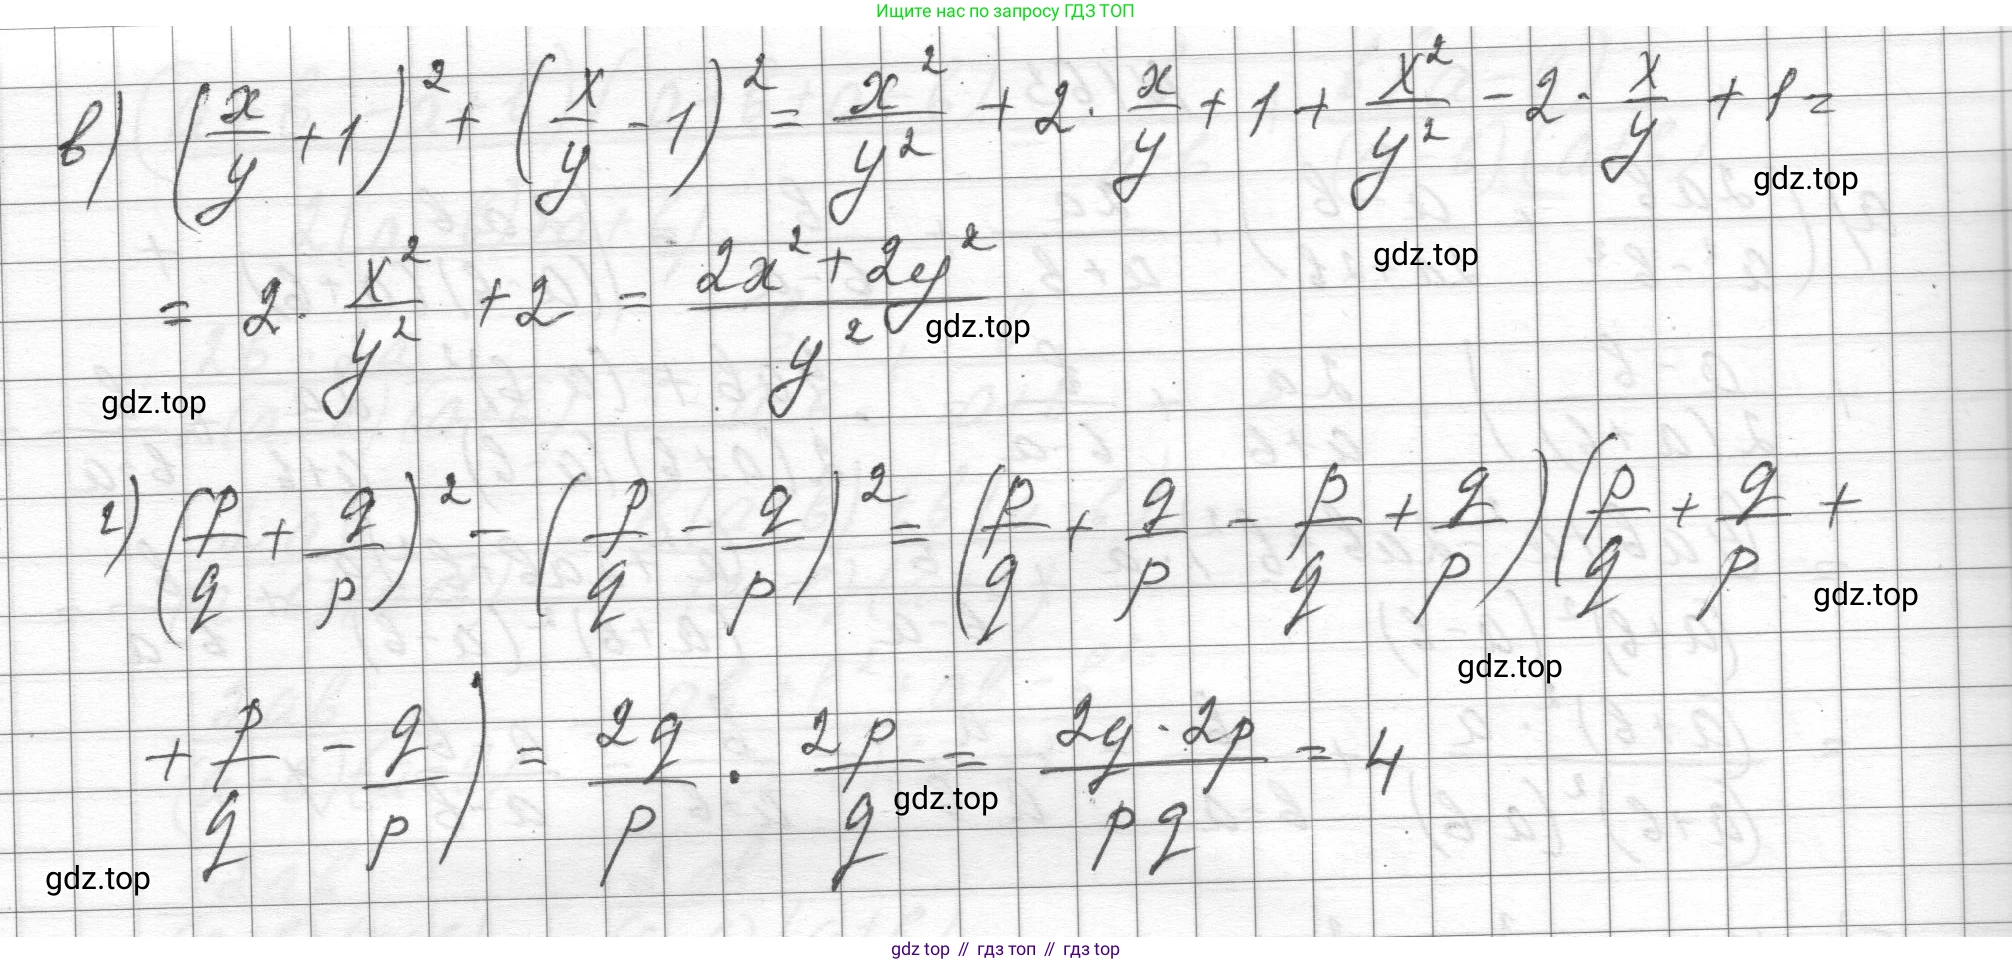 Ищите нас по запросу ГДЗ ТОП
в) (x/y + 1)² + (x/y - 1)² = x²/y² + 2 · x/y + 1 + x²/y² - 2 · x/y + 1 =
gdz.top
= 2 · x²/y² + 2 = (2x² + 2y²)/y²
gdz.top
gdz.top
gdz.top
г) (p/q + q/p)² - (p/q - q/p)² = (p/q + q/p - p/q + q/p)(p/q + q/p +
gdz.top
gdz.top
+ p/q - q/p) = 2q/p · 2p/q = (2q · 2p)/(pq) = 4
gdz.top
gdz.top
gdz top // гдз топ // гдз top